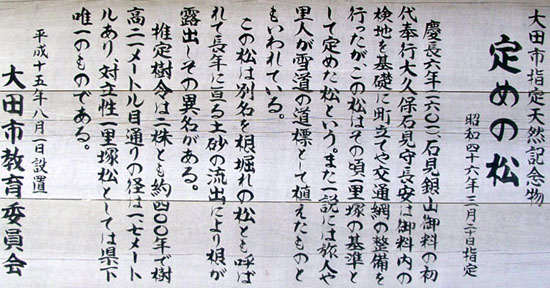 大田市指定天然記念物
定めの松
昭和四十六年三月二十日指定
慶長六年(一六〇一)、石見銀山御料の初
代奉行大久保石見守長安は御料内の
検地を基礎に町立てや交通網の整備を
行ったが、この松はその頃一里塚の基準と
して定めた松という。また一説には旅人や
里人が雪道の道標として植えたものと
もいわれている。
この松は別名を根堀れの松とも呼ば
れて長年に亘る土砂の流出により根が
露出しその異名がある。
推定樹令は二株とも約四〇〇年で樹
高二一メートル目通りの径は一、七メート
ルあり対立性一里塚松としては県下
唯一のものである。
平成十五年八月一日設置
大田市教育委員会